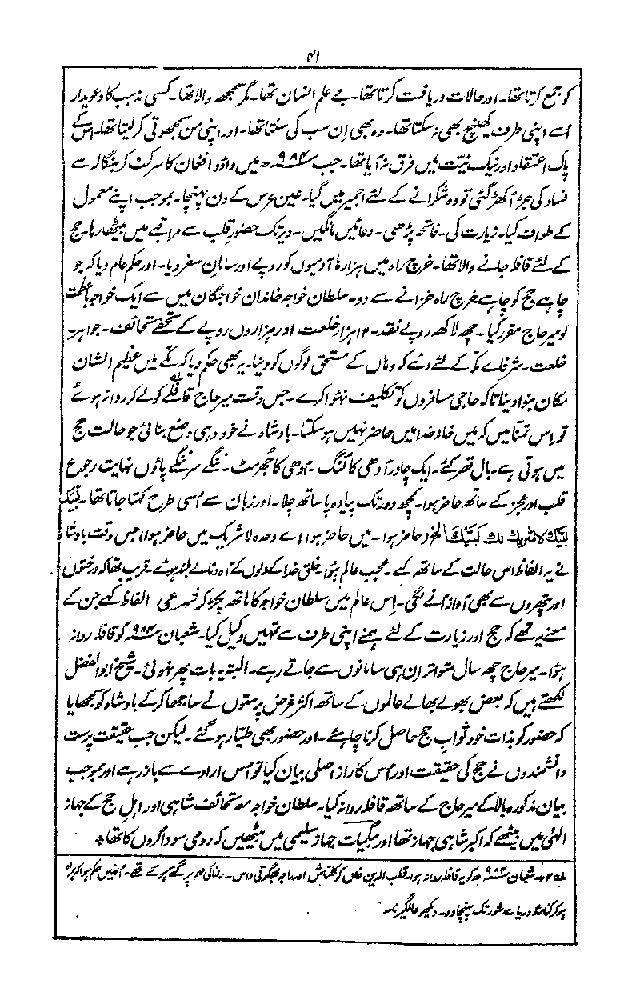 ۴۱
کو جمع کرتا تھا۔ اور حالات دریافت کرتا تھا۔ بے علم انسان تھا۔ مگر سمجھ والا تھا۔ کسی مذہب کا دعویدار
اسے اپنی طرف کھینچ بھی نہ سکتا تھا۔ وہ بھی ان سب کی سنتا تھا۔ اور اپنی من سمجھوتی کر لیتا تھا۔ اس کے
پاک اعتقاد اور نیک نیت میں فرق نہ آیا تھا۔ جب ۹۸۴ھ میں داؤد افغان کا سر کٹ کر بنگالہ سے
فساد کی جڑ اکھڑ گئی تو وہ شکرانے کے لئے اجمیر میں گیا۔ عین عرس کے دن پہنچا۔ بموجب اپنے معمول
کے طواف کیا۔ زیارت کی۔ فاتحہ پڑھی۔ دعائیں مانگیں۔ دیر تک حضور قلب سے مراقبے میں بیٹھا رہا۔ حج
کے لئے قافلہ جانے والا تھا۔ خرچ راہ میں ہزارہا آدمیوں کو روپے اور سامان سفر دیا۔ اور حکم عام دیا کہ جو
چاہے حج کو جائے خرچ راہ خزانے سے دو۔ سلطان خواجہ خاندان خواجگان میں سے ایک خواجہ باعظمت
کو میر حاج مقرر کیا۔ چھ لاکھ روپے نقد۔ ۱۲ ہزار خلعت اور ہزاروں روپے کے تحفے تحائف۔ جواہر
خلعت۔ شرفائے مکہ کے لئے دئے کہ وہاں کے مستحق لوگوں کو دینا۔ یہ بھی حکم دیا کہ مکے میں عظیم الشان
مکان بنوا دینا تاکہ حاجی مسافروں کو تکلیف نہ ہوا کرے۔ جس وقت میر حاج قافلے کو لے کر روانہ ہوئے
تو اس تمنا میں کہ میں خانہ خدا میں حاضر نہیں ہو سکتا۔ بادشاہ نے خود وہی وضع بنائی جو حالت حج
میں ہوتی ہے۔ بال قصر کئے۔ ایک چادر آدھی کا لنگ۔ آدھی کا جھرمٹ۔ ننگے سر ننگے پاؤں نہایت رجوع
قلب اور عجز کے ساتھ حاضر ہوا۔ کچھ دور تک پیادہ پا ساتھ چلا۔ اور زبان سے اسی طرح کہتا جاتا تھا۔ لبیک
لبیک لا شریک لک لبیک الخ۔ حاضر ہوا۔ میں حاضر ہوا اے وحدہ لا شریک میں حاضر ہوا۔ جس وقت بادشاہ
نے یہ الفاظ اس حالت کے ساتھ کہے۔ عجب عالم ہوا۔ خلق خدا کے دلوں کے آہ و نالے بلند ہوئے۔ قریب تھا کہ درختوں
اور پتھروں سے بھی آواز آنے لگی۔ اس عالم میں سلطان خواجہ کا ہاتھ پکڑ کر شرعی الفاظ کہے جن کے
معنے یہ تھے کہ حج اور زیارت کے لئے ہم نے اپنی طرف سے تمہیں وکیل کیا۔ شعبان ۹۸۴ھ کو قافلہ روانہ
ہوا۔ میر حاج چھ سال متواتر ان ہی سامانوں سے جاتے رہے۔ البتہ یہ بات پھر نہ ہوئی۔ شیخ ابو الفضل
لکھتے ہیں کہ بعض بھولے بھالے عالموں کے ساتھ اکثر غرض پرستوں نے ساجھا کر کے بادشاہ کو سمجھایا
کہ حضور کو بذات خود ثواب حج حاصل کرنا چاہئے۔ اور حضور بھی طیار ہو گئے۔ لیکن جب حقیقت پرست
دانشمندوں نے حج کی حقیقت اور اس کا راز اصلی بیان کیا تو اس ارادے سے باز رہے اور بموجب
بیان مذکورہ بالا کے میر حاج کے ساتھ قافلہ روانہ کیا۔ سلطان خواجہ مع تحائف شاہی اور اہل حج کے جہاز
الٰہی میں بیٹھے کہ اکبر شاہی جہاز تھا اور بیگمات جہاز سلیمی میں بیٹھیں کہ رومی سوداگروں کا تھا۔
شعبان ۹۸۴ھ قافلہ روانہ ہوا۔ قطب الدین خاں
دریائے شور تک پہنچا دو۔ دیکھو عالمگیر نامہ